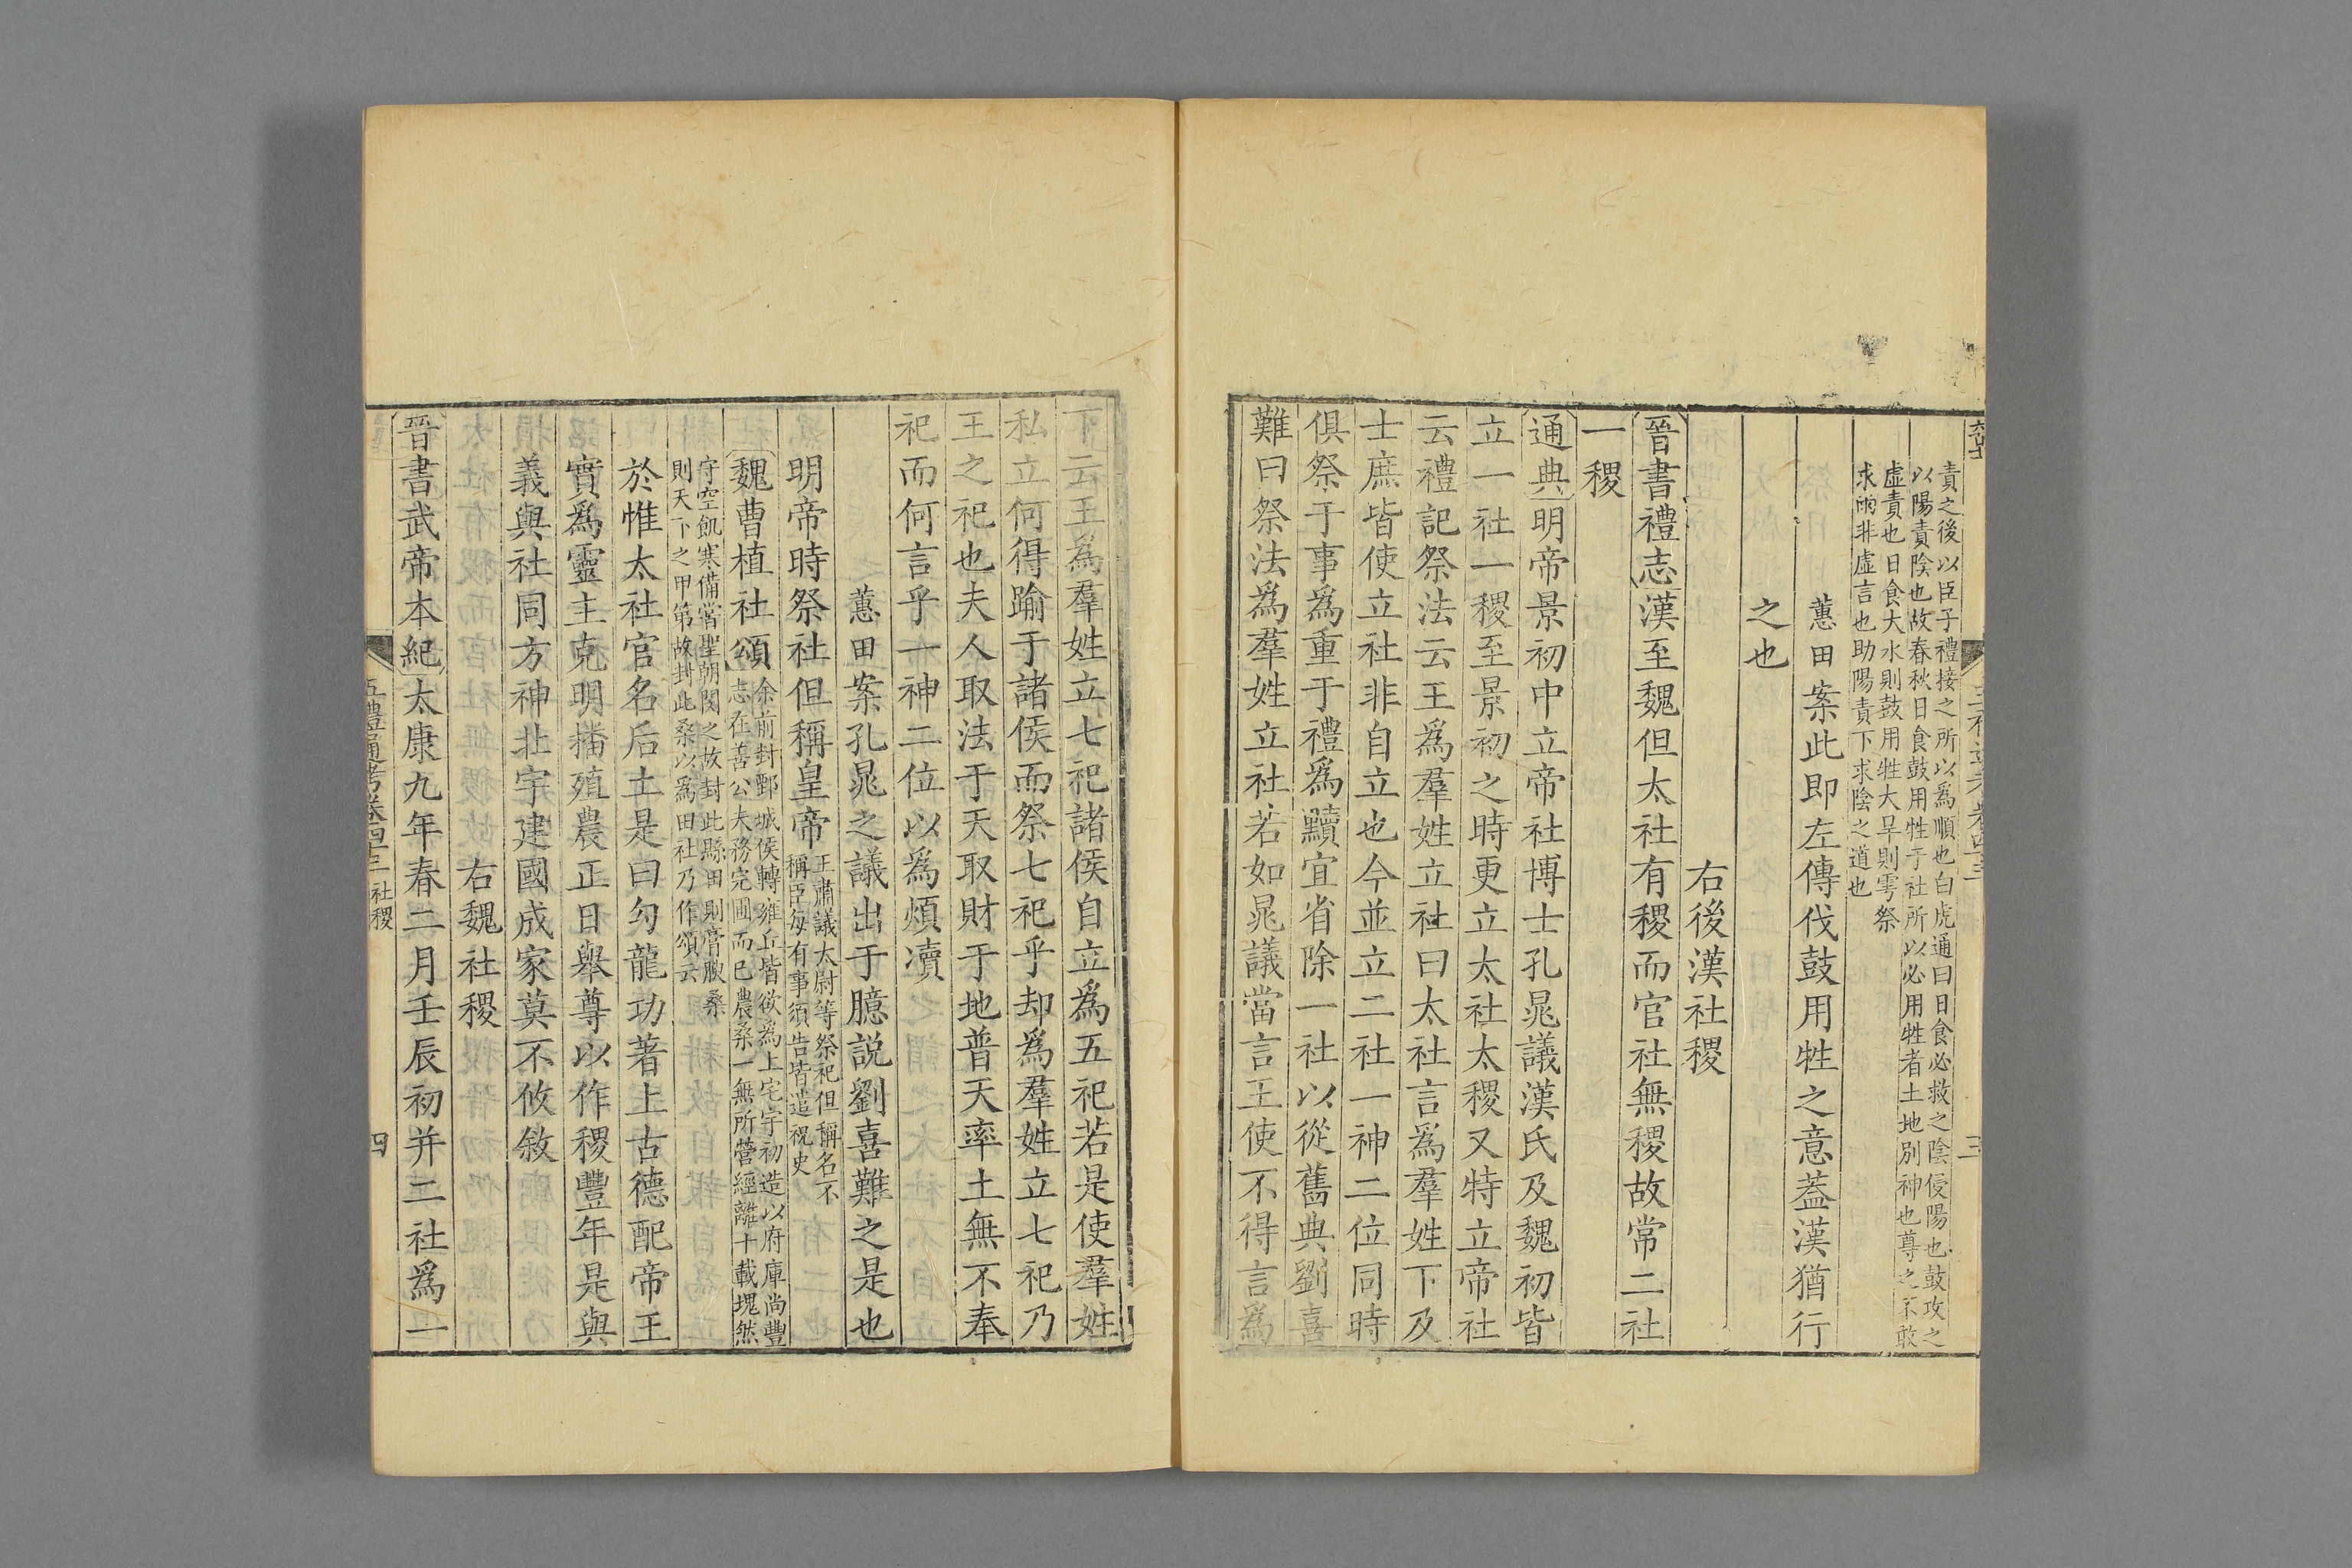 責之後以臣子禮接之所以為順也白虎通曰日食必救之陰侵陽也鼓攻之
以陽責陰也故春秋日食鼓用牲于社所以必用牲者土地別神也尊之不敢
虛責也日食大水則鼓用牲大旱則雩祭
求雨非虛言也助陽責下求陰之道也
蕙田案此即左傳伐鼓用牲之意蓋漢猶行
之也
右後漢社稷
晉書禮志漢至魏但太社有稷而官社無稷故常二社
一稷
通典明帝景初中立帝社博士孔晁議漢氏及魏初皆
立一社一稷至景初之時更立太社太稷又特立帝社
云禮記祭法云王爲羣姓立社曰太社言爲羣姓下及
士庶皆使立社非自立也今並立二社一神二位同時
俱祭于事爲重于禮爲黷宜省除一社以從舊典劉喜
難曰祭法爲羣姓立社若如晁議當言王使不得言爲
下云王爲羣姓立七祀諸侯自立爲五祀若是使羣姓
私立何得踰于諸侯而祭七祀乎却爲羣姓立七祀乃
王之祀也夫人取法于天取財于地普天率土無不奉
祀而何言乎一神二位以爲煩瀆
蕙田案孔晁之議出于臆說劉喜難之是也
明帝時祭社但稱皇帝王肅議太尉等祭祀但稱名不
稱臣每有事須告皆遣祝史
魏曹植社頌余前封鄄城侯轉雍丘皆欲爲上宅宇初造以府庫尚豐
志在善公夫務完圃而已農桑一無所營經離十載塊然
守空飢寒備嘗聖朝閔之故封此縣田則膏腴桑
則天下之甲第故封此桑以爲田社乃作頌云
於惟太社官名后土是曰勾龍功著上古德配帝王
實爲靈主克明播殖農正曰舉尊以作稷豐年是與
義與社同方神北宇建國成家莫不攸敘
右魏社稷
晉書武帝本紀太康九年春二月壬辰初并二社爲一
五禮通考卷四十三 社稷
四